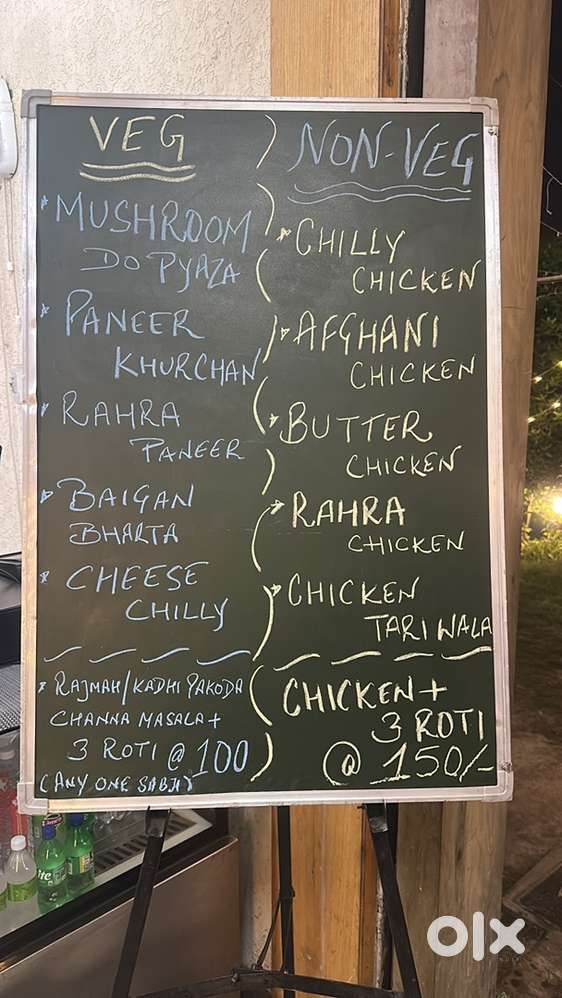 VEG
MUSHROOM
DO PYAZA
PANEER
KHURCHAN
RAHRA
PANEER
BAIGAN
BHARTA
CHEESE
CHILLY
RAJMAH/KADHI PAKODA
CHANNA MASALA +
3 ROTI @ 100
(ANY ONE SABJI)
NON-VEG
CHILLY
CHICKEN
AFGHANI
CHICKEN
BUTTER
CHICKEN
RAHRA
CHICKEN
CHICKEN
TARI WALA
CHICKEN +
3 ROTI
@ 150/-
olx
INDIA